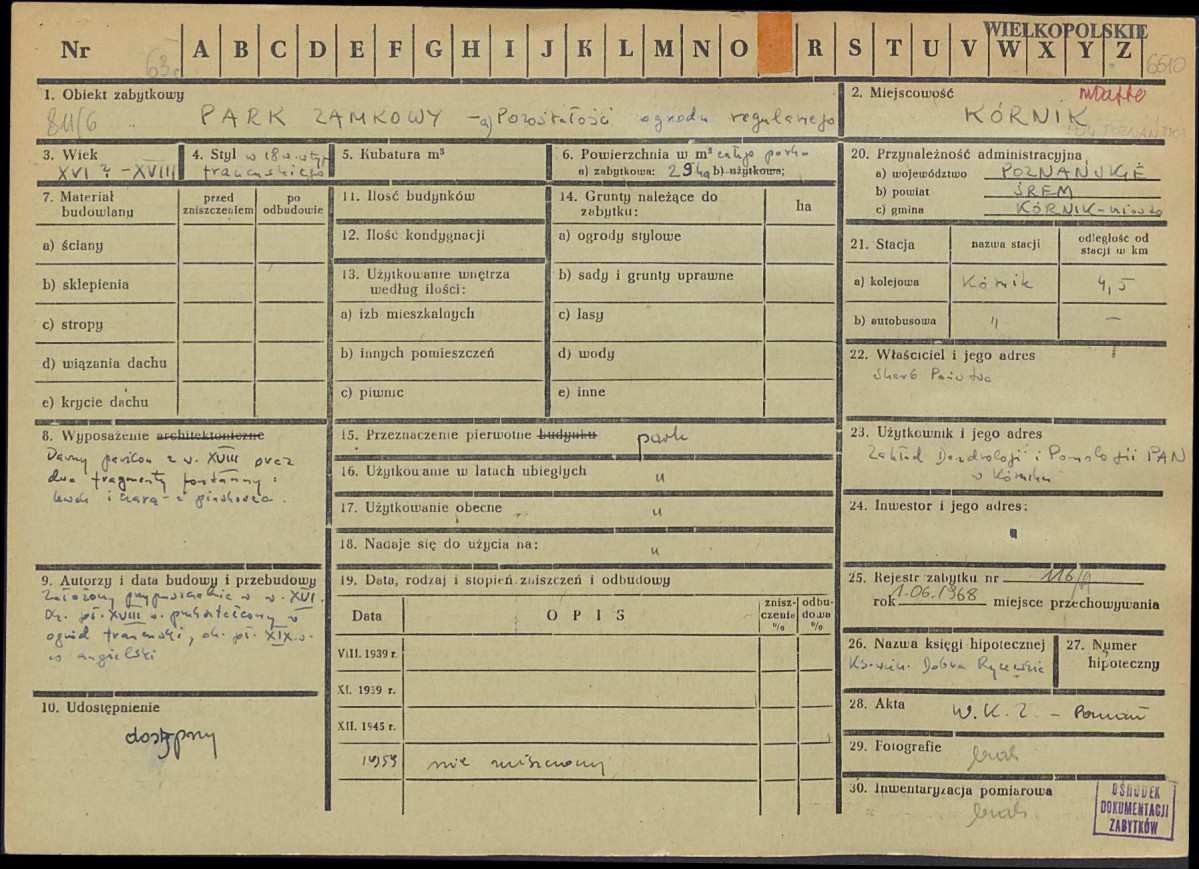 WIELKOPOLSKIE
Nr A B C D E F G H I J K L M N O R S T U V W X Y Z
63c
6610
1. Obiekt zabytkowy
PARK ZAMKOWY – a) Pozostałości ogrodu regularnego
2. Miejscowość
miasto
KÓRNIK
POW. POZNAŃSKI
3. Wiek
XVI ? – XVIII
4. Styl w 18 w. typ
francuskiego
5. Kubatura m³
6. Powierzchnia w m² całego parku
a) zabytkowa: 29 ha b) użytkowa:
20. Przynależność administracyjna
a) województwo POZNAŃSKIE
b) powiat ŚREM
c) gmina KÓRNIK – miasto
7. Materiał budowlany
przed zniszczeniem
po odbudowie
a) ściany
b) sklepienia
c) stropy
d) wiązania dachu
e) krycie dachu
11. Ilość budynków
12. Ilość kondygnacji
13. Użytkowanie wnętrza
według ilości:
a) izb mieszkalnych
b) innych pomieszczeń
c) piwnic
14. Grunty należące do
zabytku:
ha
a) ogrody stylowe
b) sady i grunty uprawne
c) lasy
d) wody
e) inne
21. Stacja
nazwa stacji
odległość od
stacji w km
a) kolejowa Kórnik 4,5
b) autobusowa " –
22. Właściciel i jego adres
Skarb Państwa
8. Wyposażenie architektoniczne
Dawny pawilon z w. XVIII oraz
dwa fragmenty fontanny:
z piaskowca.
15. Przeznaczenie pierwotne budynku park
16. Użytkowanie w latach ubiegłych "
17. Użytkowanie obecne "
18. Nadaje się do użycia na: "
23. Użytkownik i jego adres
Zakład Dendrologii i Pomologii PAN
w Kórniku
24. Inwestor i jego adres:
"
9. Autorzy i data budowy i przebudowy
Założony przypuszczalnie w w. XVI.
Ok. poł. XVIII w. przekształcony w
ogród francuski, ok. poł. XIX w.
w angielski
19. Data, rodzaj i stopień zniszczeń i odbudowy
Data
OPIS
znisz-
czenie
%
odbu-
dowa
%
VIII. 1939 r.
XI. 1939 r.
XII. 1945 r.
1959 nie zniszczony
25. Rejestr zabytku nr 116/A
rok 1.06.1968 miejsce przechowywania
26. Nazwa księgi hipotecznej
Dobra Rycerskie
27. Numer
hipoteczny
10. Udostępnienie
dostępny
28. Akta W.K.Z. – Poznań
29. Fotografie brak
30. Inwentaryzacja pomiarowa
brak
OŚRODEK
DOKUMENTACJI
ZABYTKÓW